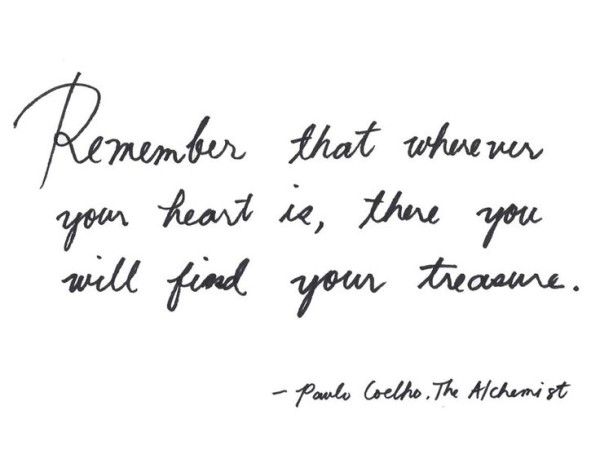 Remember that wherever
your heart is, there you
will find your treasure.
- Paulo Coelho. The Alchemist